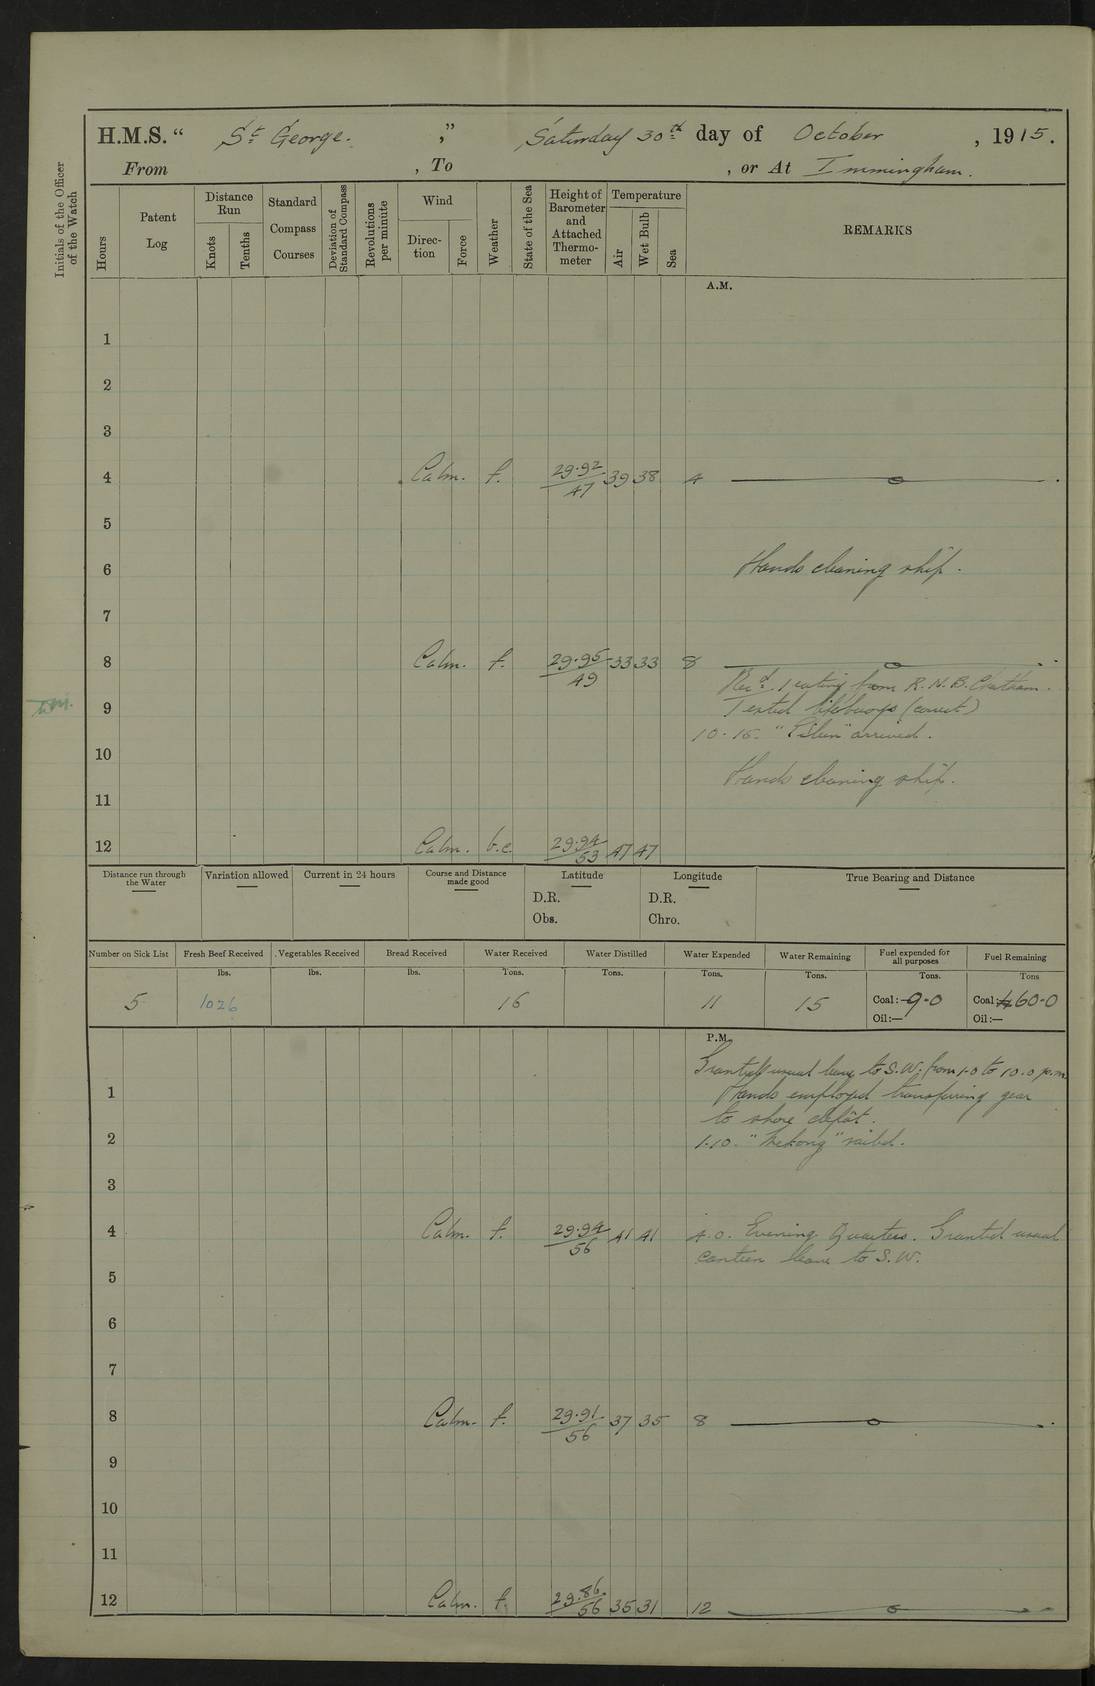 H.M.S. “ St George. ,” Saturday 30th day of October , 1915.
From , To , or At Immingham.
Initials of the Officer of the Watch
Hours
Patent Log
Distance Run
Knots
Tenths
Standard Compass Courses
Deviation of Standard Compass
Revolutions per minute
Wind
Direction
Force
Weather
State of the Sea
Height of Barometer and Attached Thermometer
Temperature
Air
Wet Bulb
Sea
REMARKS
A.M.
1
2
3
4 Calm. f. 29.92/47 39 38 4
5
6 Hands cleaning ship.
7
8 Calm. f. 29.95/49 33 33 8
Recd. 1 rating from R.N.B. Chatham.
9 Tested lifebuoys (correct)
10-15. arrived.
10
Hands cleaning ship.
11
12 Calm. b.c. 29.94/53 47 47
Distance run through the Water
Variation allowed
Current in 24 hours
Course and Distance made good
Latitude
D.R.
Obs.
Longitude
D.R.
Chro.
True Bearing and Distance
Number on Sick List Fresh Beef Received Vegetables Received Bread Received Water Received Water Distilled Water Expended Water Remaining Fuel expended for all purposes Fuel Remaining
lbs. lbs. lbs. Tons. Tons. Tons. Tons. Tons. Tons
5 1026 16 11 15 Coal:— 9-0 Coal:— 460-0
Oil:— Oil:—
P.M.
Granted usual leave to S.W. from 1.0 to 10.0 p.m.
1 Hands employed transferring gear
to shore depôt.
2 1-10. "Mekong" sailed.
3
4 Calm. f. 29.94/56 41 41 4.0. Evening Quarters. Granted usual
canteen leave to S.W.
5
6
7
8 Calm. f. 29.91/56 37 35 8
9
10
11
12 Calm. f. 29.86/56 35 31 12